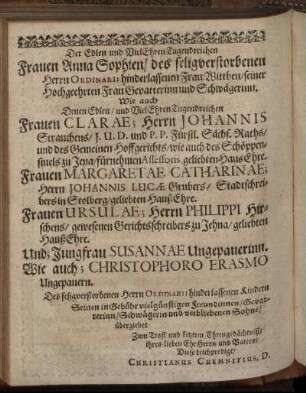 Der Edlen und VielEhrenTugendreichen
Frauen Anna Sophien/ des seligverstorbenen
Herrn ORDINARII hinderlassenen Frau Wittben/ seiner
Hochgeehrten Frau Gevatterinn und Schwägerinn.
Wie auch
Denen Edlen/ und Viel Ehren Tugendreichen
Frauen CLARAE; Herrn JOHANNIS
Strauchens/ J. U. D. und P. P. Fürstl. Sächs. Raths/
und des Gemeinen Hoffgerichts/ wie auch des Schöppen-
stuels zu Jena/ fürnehmen Assessoris geliebten Hauß Ehre.
Frauen MARGARETAE CATHARINAE;
Herrn JOHANNIS LUCÆ Grubers/ Stadtschrei-
bers in Stolberg/ geliebten Hauß Ehre.
Frauen URSULAE; Herrn PHILIPPI Hir-
schens/ gewesenen Gerichtsschreibers zu Jehna/ geliebten
Hauß Ehre.
Und; Jungfrau SUSANNAE Ungepauerinn.
Wie auch; CHRISTOPHORO ERASMO
Ungepauern.
Des seligverstorbenen Herrn ORDINARII hinderlassenen Kindern
Seinen in Gebühr vielgünstigen Freundinnen/ Gevat-
terinn/ Schwägerin und verbliebenen Sohne/
übergiebet
Zum Trost und letzten Ehrengedächtniß
Ihres lieben Ehe Herrn und Vatern/
Diese Leichpredigt/
CHRISTIANUS CHEMNITIUS, D.